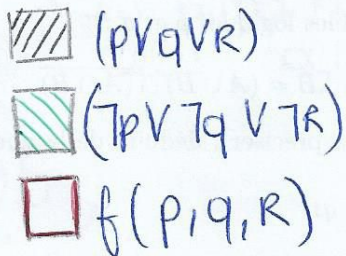 (p∨q∨R)
(¬p∨¬q∨¬R)
f(p,q,R)